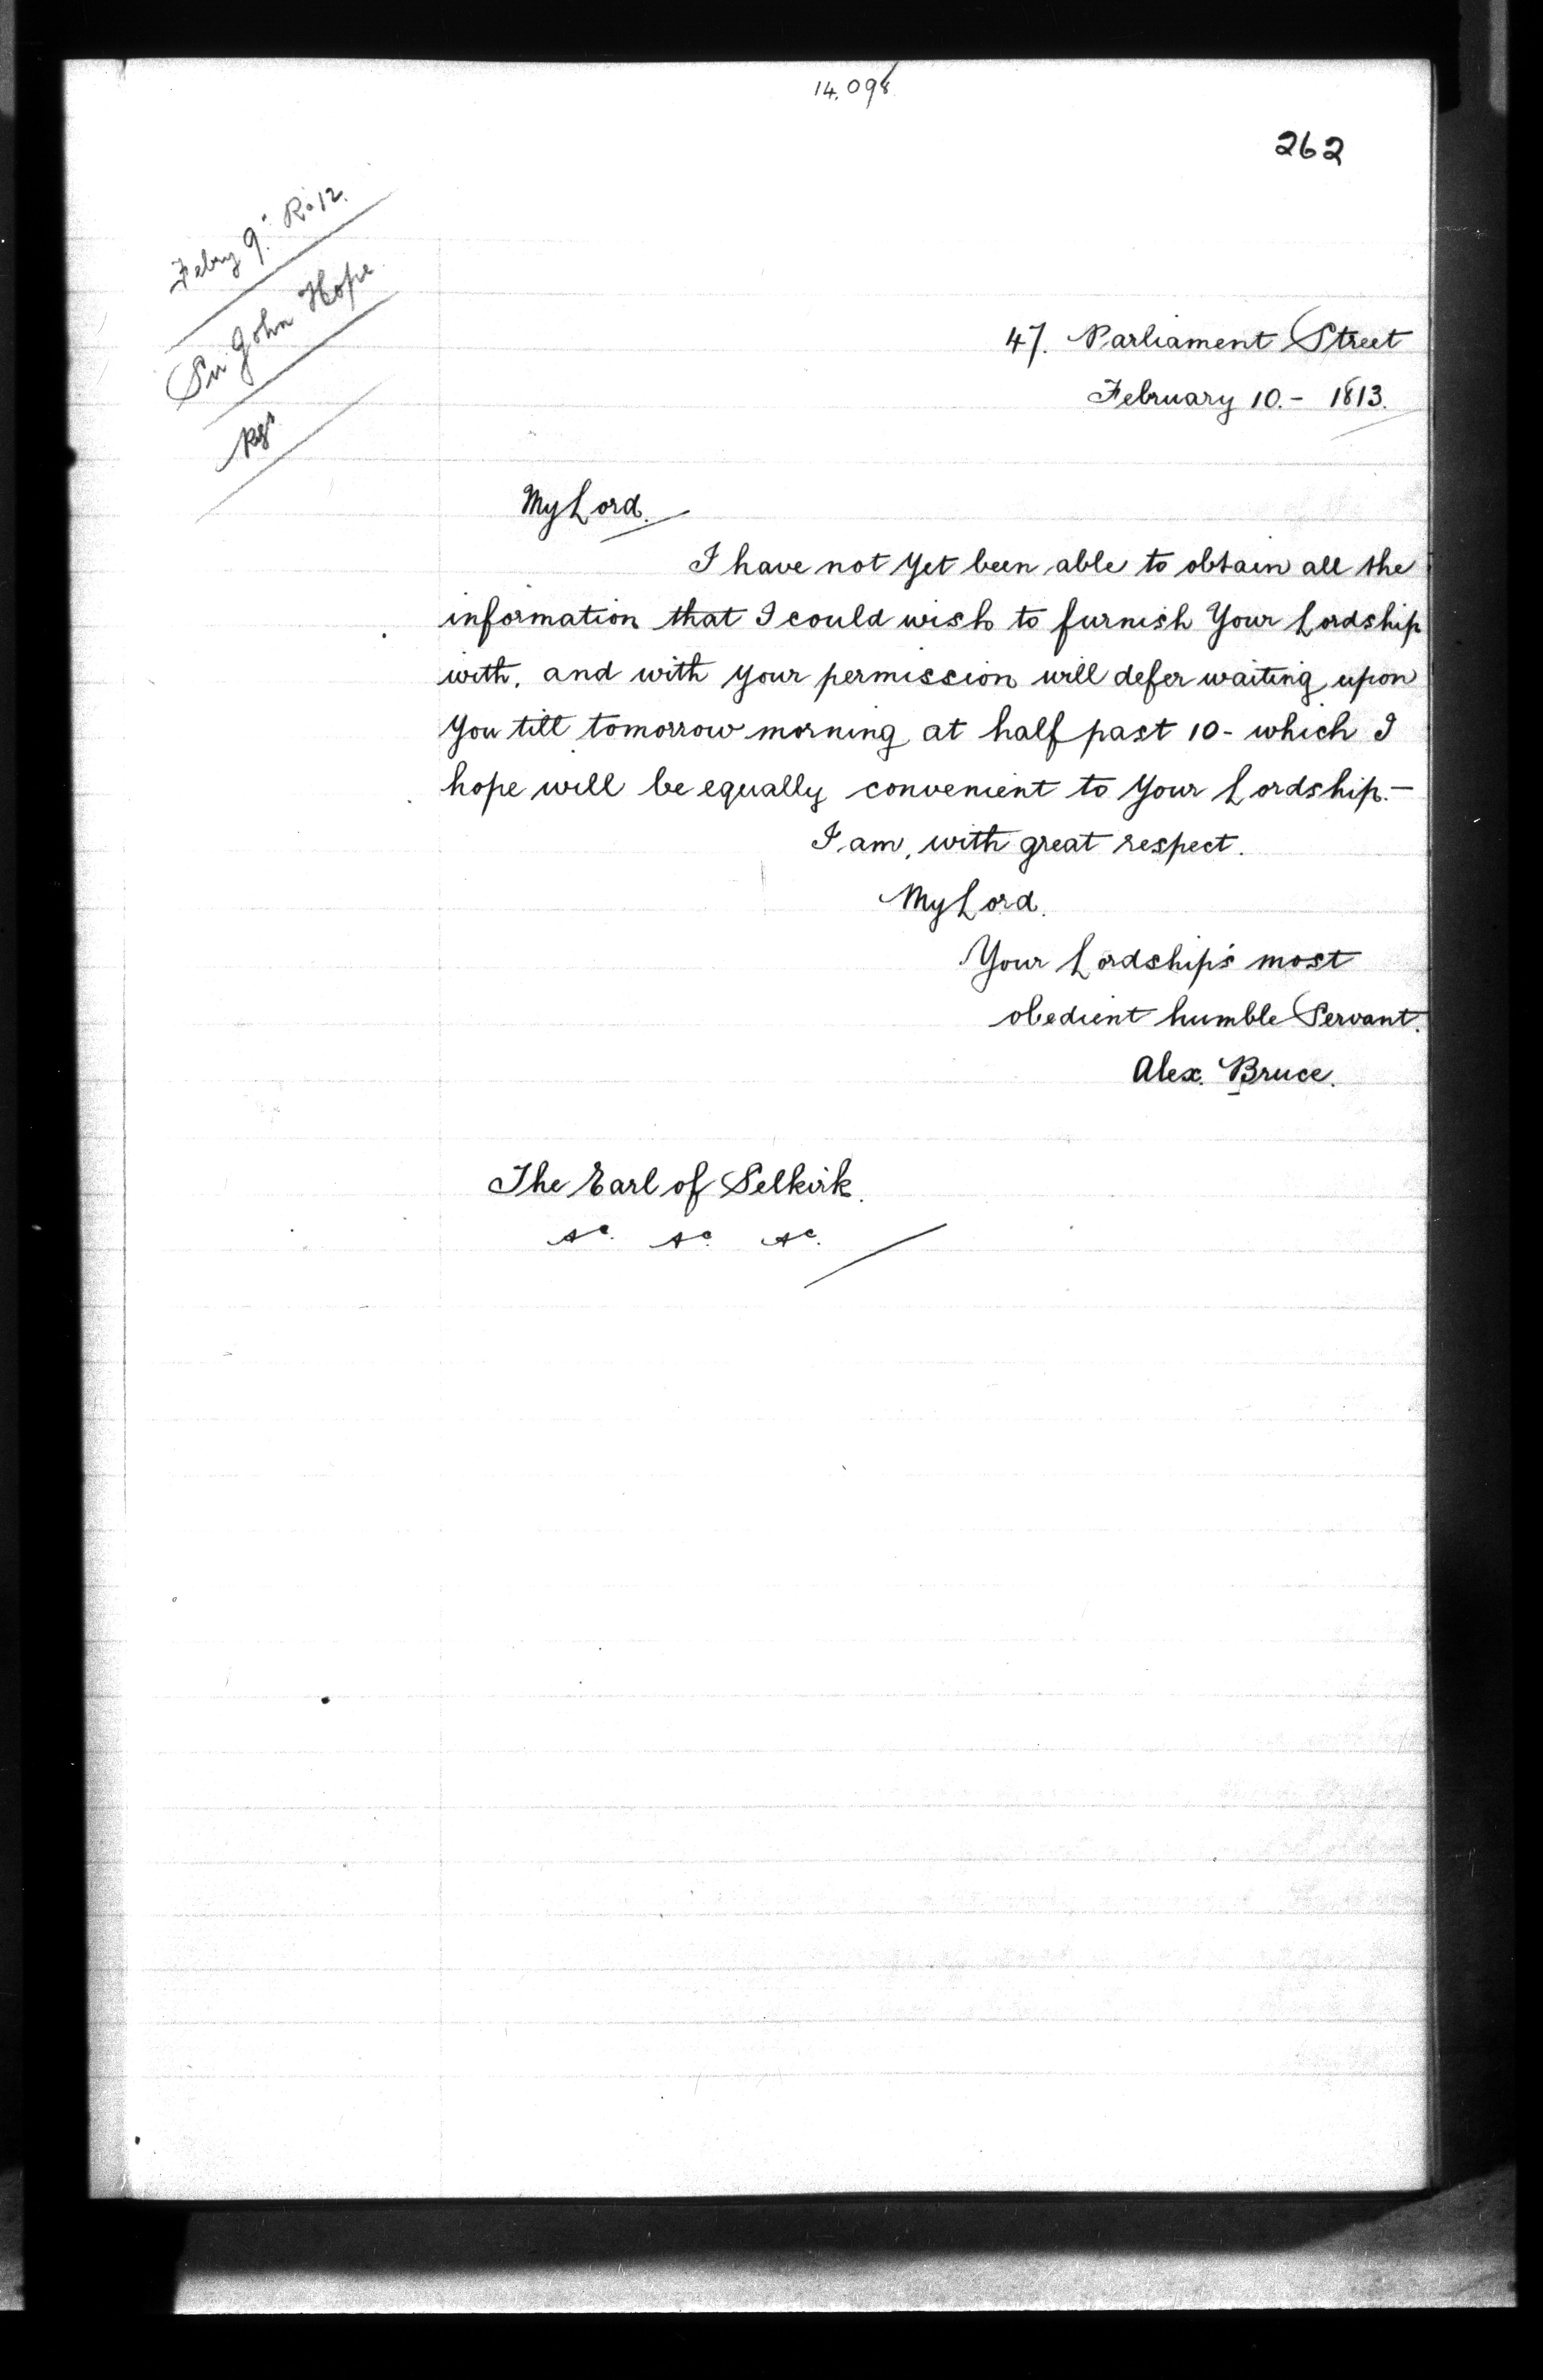 14.098
262
Febry 9. R. 12.
Sir John Hope
47. Parliament Street
February 10.- 1813.
My Lord.
I have not yet been able to obtain all the
information that I could wish to furnish Your Lordship
with. and with your permission will defer waiting upon
you till tomorrow morning at half past 10 - which I
hope will be equally convenient to Your Lordship.-
I am, with great respect.
My Lord.
Your Lordship's most
obedient humble Servant.
Alex. Bruce.
The Earl of Selkirk.
&c. &c. &c.